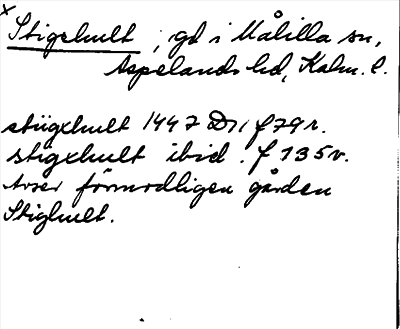 x
Stigehult, gd i Målilla sn,
Aspelands hd, Kalm. l.
stiigxhult 1447 D 7, f 79 r.
stigxhult ibid. f 135 v.
Avser förmodligen gården
Stighult.